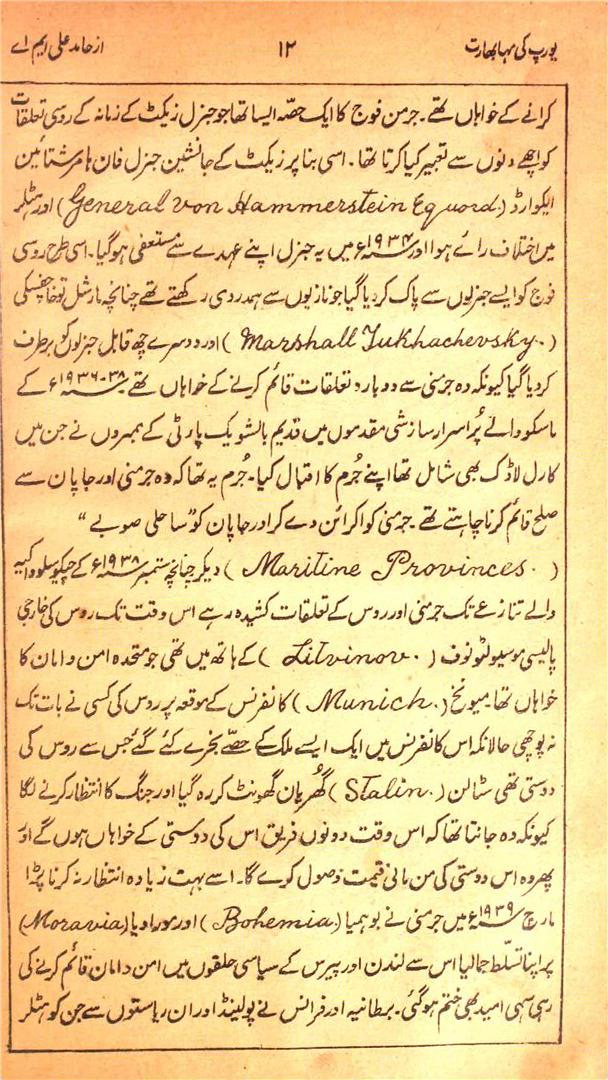 یورپ کی مہا بھارت ۱۲ از حامد علی ایم اے
کرانے کے خواہاں تھے۔ جرمن فوج کا ایک حصّہ ایسا تھا جو جنرل زیکٹ کے زمانہ کے روسی تعلقات
کو اچھے دنوں سے تعبیر کیا کرتا تھا۔ اسی بنا پر زیکٹ کے جانشین جنرل فان ہامرشتائین
ایکوارڈ (General von Hammerstein Equord.) اور ہٹلر
میں اختلاف رائے ہوا اور ۱۹۳۴ء میں یہ جنرل اپنے عہدے سے مستعفی ہوگیا۔ اسی طرح روسی
فوج کو ایسے جنرلوں سے پاک کر دیا گیا جو نازیوں سے ہمدردی رکھتے تھے چنانچہ مارشل توخاچفسکی
(Marshall Tukhachevsky.) اور دوسرے چھ قابل جنرلوں کو برطرف
کر دیا گیا کیونکہ وہ جرمنی سے دوبارہ تعلقات قائم کرنے کے خواہاں تھے ۳۸-۱۹۳۶ء کے
ماسکو والے پُراسرار سازشی مقدموں میں قدیم بالشویک پارٹی کے ممبروں نے جن میں
کارل لاڈک بھی شامل تھا اپنے جُرم کا اقبال کیا۔ جُرم یہ تھا کہ وہ جرمنی اور جاپان سے
صلح قائم کرنا چاہتے تھے۔ جرمنی کو اکرائن دے کر اور جاپان کو "ساحلی صوبے"
(Maritine Provinces.) دیکر چنانچہ ستمبر ۱۹۳۸ء کے چیکوسلوواکیہ
والے تنازعے تک جرمنی اور روس کے تعلقات کشیدہ رہے اس وقت تک روس کی خارجی
پالیسی موسیو لٹونوف (Litvinov.) کے ہاتھ میں تھی جو متحدہ امن و امان کا
خواہاں تھا۔ میونخ (Munich.) کانفرنس کے موقعہ پر روس کی کسی نے بات تک
نہ پوچھی حالانکہ اس کانفرنس میں ایک ایسے ملک کے حصّے بخرے کئے گئے جس سے روس کی
دوستی تھی سٹالن (Stalin.) گھُریاں گھونٹ کر رہ گیا اور جنگ کا انتظار کرنے لگا
کیونکہ وہ جانتا تھا کہ اس وقت دونوں فریق اس کی دوستی کے خواہاں ہوں گے اور
پھر وہ اس دوستی کی من مانی قیمت وصول کرے گا۔ اسے بہت زیادہ انتظار نہ کرنا پڑا
مارچ ۱۹۳۹ء میں جرمنی نے بوہمیا (Bohemia.) اور موراویا (Moravia)
پر اپنا تسلّط جما لیا اس سے لندن اور پیرس کے سیاسی حلقوں میں امن و امان قائم کرنے کی
رہی سہی امید بھی ختم ہوگئی۔ برطانیہ اور فرانس نے پولینڈ اور ان ریاستوں سے جن کو ہٹلر